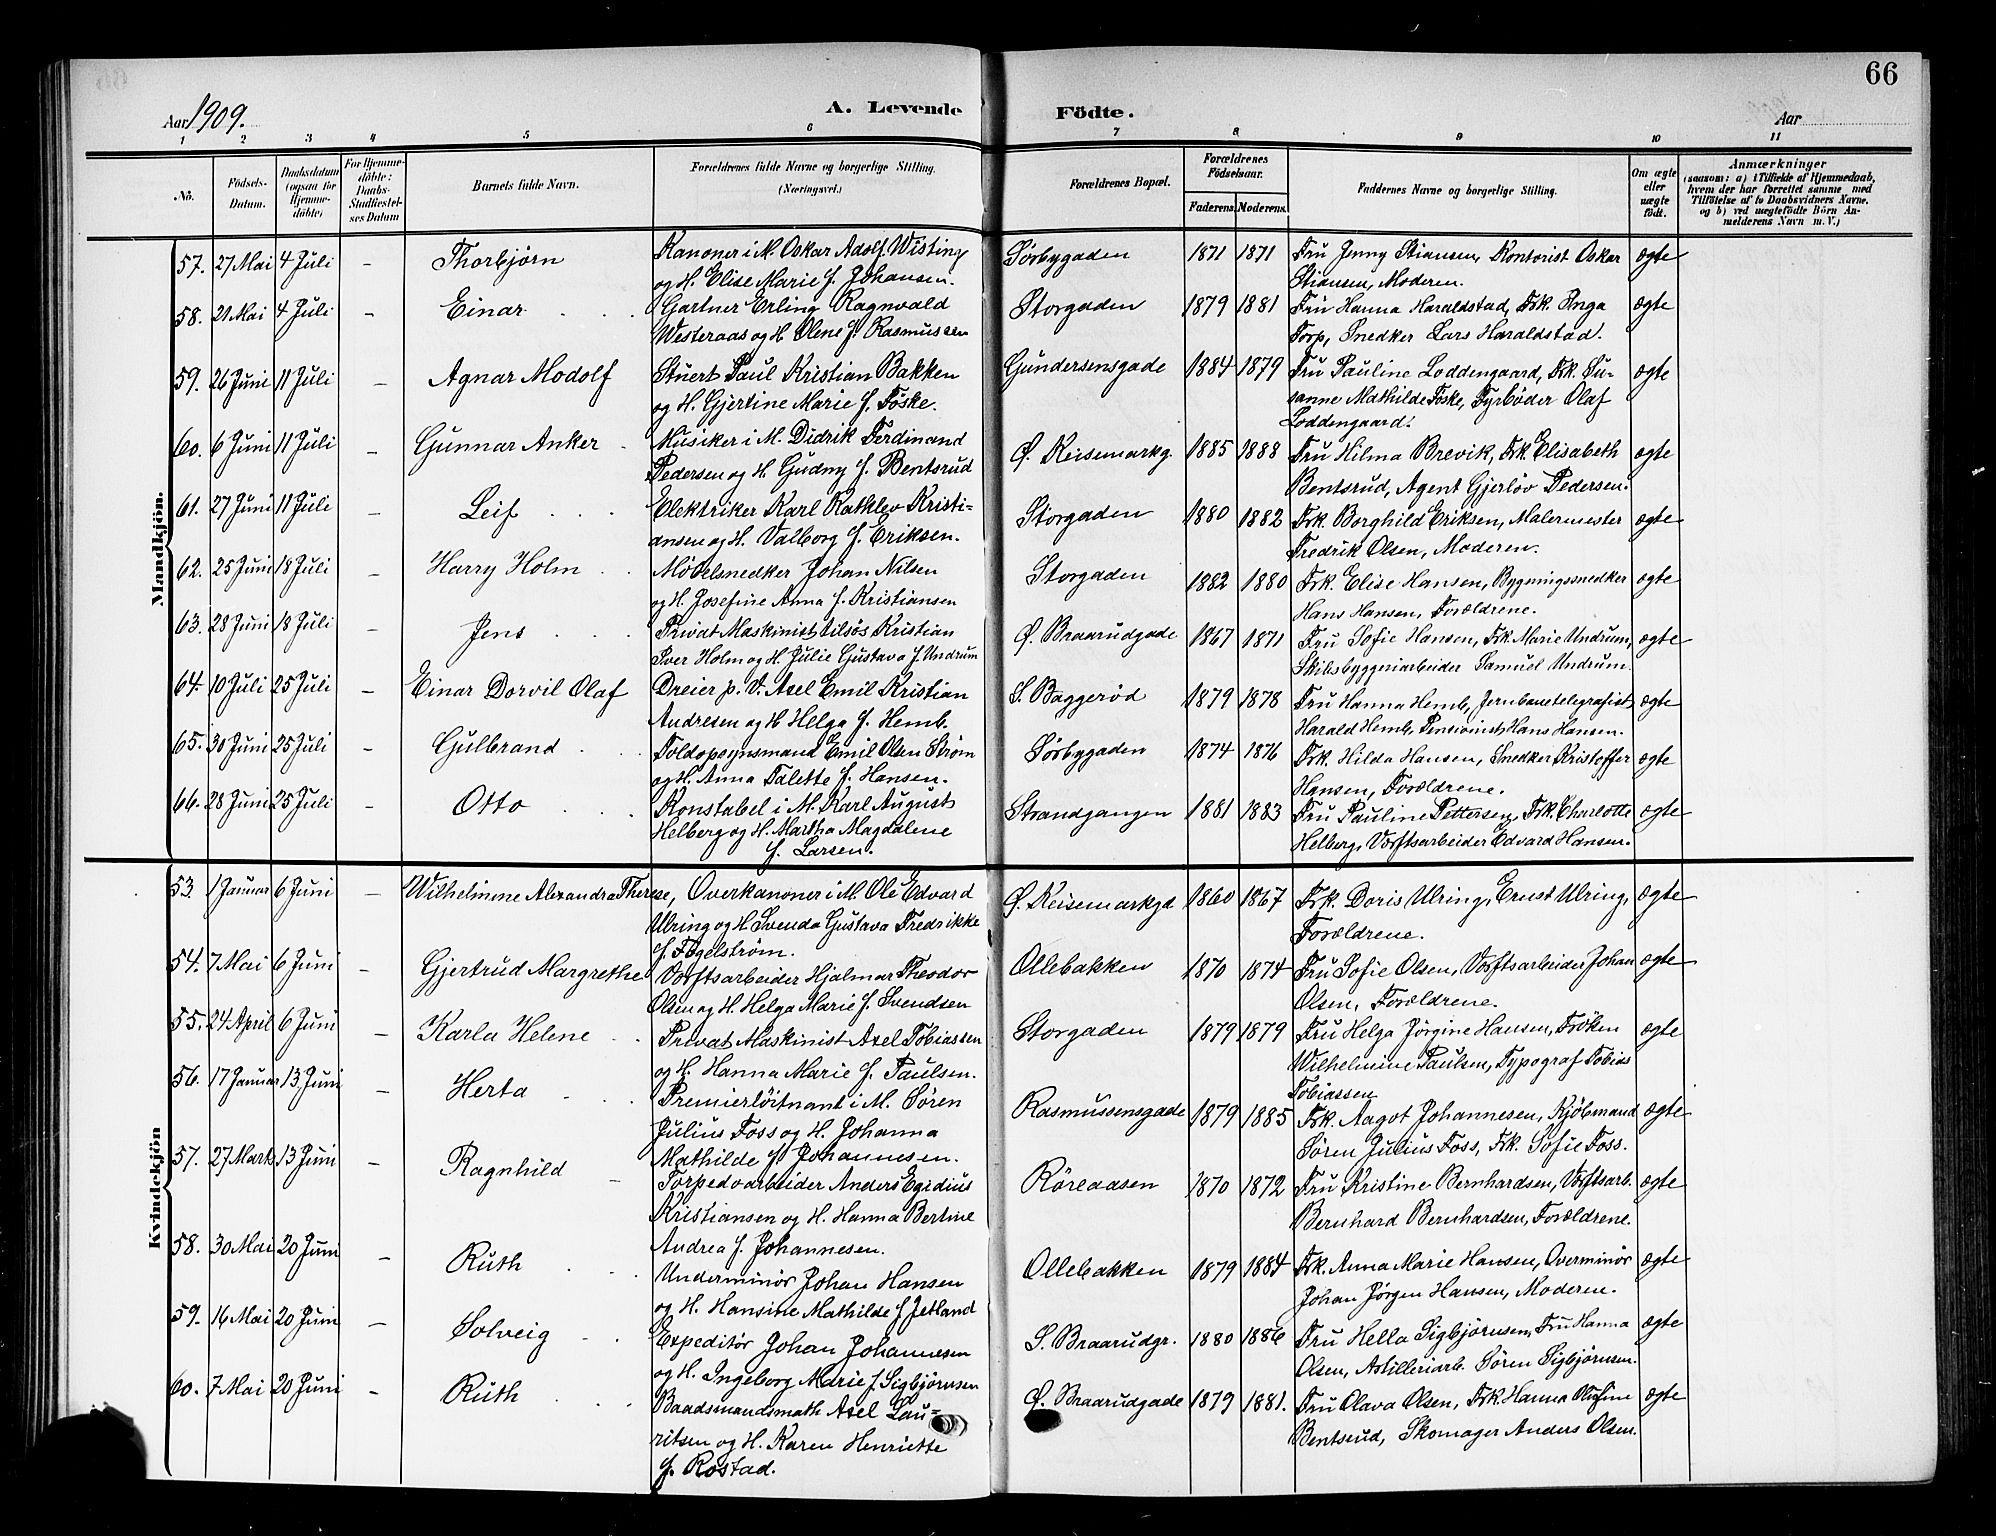 66
Aar 1909.
A. Levende Födte.
Aar
1 2 3 4 5 6 7 8 9 10 11
No.
Födsels-Datum.
Daabsdatum (ogsaa for Hjemmedöbte)
For Hjemmedöbte: Daabs-Stadfæstelses Datum
Barnets fulde Navn.
Forældrenes fulde Navne og borgerlige Stilling. (Næringsvei.)
Forældrenes Bopæl.
Forældrenes Födselsaar.
Faderens. Moderens.
Faddernes Navne og borgerlige Stilling.
Om ægte eller uægte födt.
Anmærkninger
(saasom: a) i Tilfælde af Hjemmedaab,
hvem der har forrettet samme med
Tilföielse af to Daabsvidners Navne.
og b) ved uægtefödte Börn An-
melderens Navn m. V.)
Mandkjön.
57. 27 Mai 4 Juli – Thorbjørn
Kanoner i M. Oskar Adolf Wisting
og H. Elise Marie f. Johansen.
Sørbygaden 1871 1871
Fru Jenny Stiansen, Kontorist Oskar
Stiansen, Moderen.
ægte
58. 21 Mai 4 Juli – Einar
Gartner Erling Ragnvald
Westeraas og H. Olene f. Rasmussen
Storgaden 1879 1881
Fru Hanna Haraldstad, Frk. Inga
Torp, Snedker Lars Haraldstad.
ægte
59. 26 Juni 11 Juli – Agnar Modolf
Stuert Paul Kristian Bakken
og H. Gjertine Marie f. Foske.
Gundersensgade 1884 1879
Fru Pauline Loddengaard, Frk. Su-
sanne Mathilde Foske, Fyrbøder Olaf
Loddengaard.
ægte
60. 6 Juni 11 Juli – Gunnar Anker
Musiker i M. Didrik Ferdinand
Pedersen og H. Gudny f. Bentsrud
Ø. Keisemarkg. 1885 1888
Fru Hilma Brevik, Frk. Elisabeth
Bentsrud, Agent Gjerløv Pedersen.
ægte
61. 27 Juni 11 Juli – Leif
Elektriker Karl Rathlev Kristi-
ansen og H. Valborg f. Eriksen.
Storgaden 1880 1882
Frk. Borghild Eriksen, Malermester
Fredrik Olsen, Moderen.
ægte
62. 25 Juni 18 Juli – Harry Holm
Møbelsnedker Johan Nilsen
og H. Josefine Anna f. Kristiansen
Storgaden 1882 1880
Frk. Elise Hansen, Bygningssnedker
Hans Hansen, Forældrene.
ægte
63. 28 Juni 18 Juli – Jens
Privat Maskinist tilsøs Kristian
Iver Holm og H. Julie Gustava f. Undrum
Ø. Braarudgade 1867 1871
Fru Sofie Hansen, Frk. Marie Undrum,
Skibsbyggeriarbeider Samuel Undrum.
ægte
64. 10 Juli 25 Juli – Einar Dorvil Olaf
Dreier p. V. Axel Emil Kristian
Andresen og H. Helga f. Hemb.
S. Baggerød 1879 1878
Fru Hanna Hemb, Jernbanetelegrafist
Harald Hemb, Pensionist Hans Hansen.
ægte
65. 30 Juni 25 Juli – Gulbrand
Toldopsynsmand Emil Olsen Strøm
og H. Anna Talette f. Hansen.
Sørbygaden 1874 1876
Frk. Hilda Hansen, Snedker Kristoffer
Hansen, Forældrene.
ægte
66. 28 Juni 25 Juli – Otto
Konstabel i M. Karl August
Helberg og H. Martha Magdalene
f. Larsen.
Strandgangen 1881 1883
Fru Pauline Pettersen, Frk. Charlotte
Helberg, Værftsarbeider Edvard Hansen.
ægte
Kvindekjön
53. 1 Januar 6 Juni – Wilhelmine Alexandra Therese,
Overkanoner i M. Ole Edvard
Ulring og H. Svenda Gustava Fredrikke
f. Fogelstrøm.
Ø. Keisemarkgd 1860 1867
Frk. Doris Ulring, Ernst Ulring,
Forældrene.
ægte
54. 7 Mai 6 Juni – Gjertrud Margrethe
Værftsarbeider Hjalmar Theodor
Olsen og H. Helga Marie f. Svendsen
Ollebakken 1870 1874
Fru Sofie Olsen, Værftsarbeider Johan
Olsen, Forældrene.
ægte
55. 24 April 6 Juni – Karla Helene
Privat Maskinist Axel Tobiassen
og H. Hanna Marie f. Paulsen.
Storgaden 1879 1879
Fru Helga Jørgine Hansen, Frøken
Wilhelmine Paulsen, Typograf Tobias
Tobiassen
ægte
56. 17 Januar 13 Juni – Herta
Premierløitnant i M. Søren
Julius Foss og H. Johanna
Mathilde f. Johannesen.
Rasmussensgade 1879 1885
Frk. Aagot Johannesen, Kjøbmand
Søren Julius Foss, Frk. Sofie Foss.
ægte
57. 27 Marts 13 Juni – Ragnhild
Torpedoarbeider Anders Egidius
Kristiansen og H. Hanna Bertine
Andrea f. Johannesen.
Røreaasen 1870 1872
Fru Kristine Bernhardsen, Værftsarb.
Bernhard Bernhardsen, Forældrene.
ægte
58. 30 Mai 20 Juni – Ruth
Underminør Johan Hansen
og H. Hansine Mathilde f. Jetland
Ollebakken 1879 1884
Frk. Anna Marie Hansen, Overminør
Johan Jørgen Hansen, Moderen.
ægte
59. 16 Mai 20 Juni – Solveig
Expeditør Johan Johannesen
og H. Ingeborg Marie f. Sigbjørnsen
S. Braarudgr. 1880 1886
Fru Hella Sigbjørnsen, Fru Hanna
Olsen, Artilleriarb. Søren Sigbjørnsen.
ægte
60. 7 Mai 20 Juni – Ruth
Baadsmandsmath Axel Lau-
ritsen og H. Karen Henriette
f. Rostad.
Ø. Braarudgade 1879 1881.
Fru Olava Olsen, Frk. Hanna Olufine
Bentsrud, Skomager Anders Olsen.
ægte